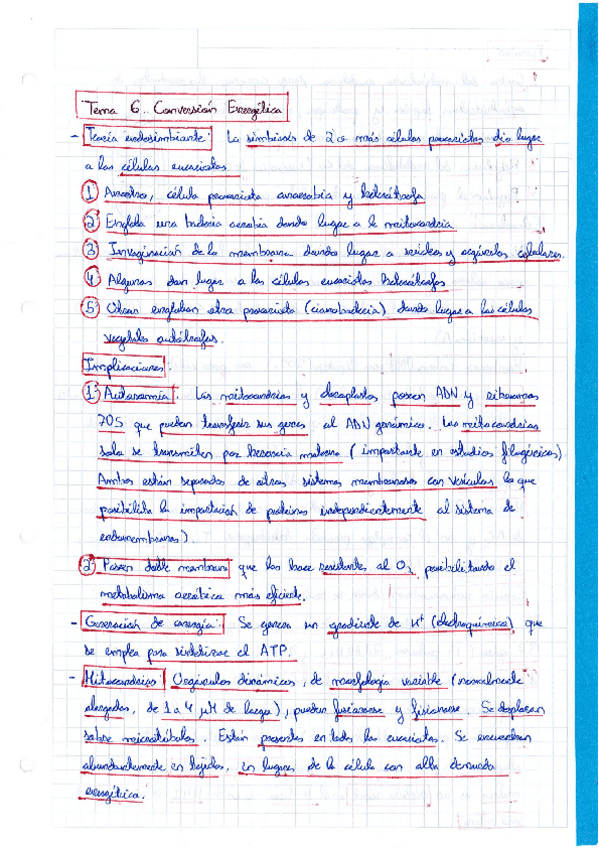 Tema 6.. Conversión Energética
- Teoría endosimbionte: La simbiosis de 2 o más células procariotas dio lugar
a las células eucariotas
1 Ancestro, célula procariota anaerobia y heterótrofa
2 Engloba una bacteria aerobia dando lugar a la mitocondria
3 Invaginación de la membrana dando lugar a núcleo y orgánulos celulares.
4 Algunas dan lugar a las células eucariotas heterótrofas
5 Otras engloban otra procariota (cianobacteria) dando lugar a las células
vegetales autótrofas.
Implicaciones:
1 Autonomía: Las mitocondrias y cloroplastos poseen ADN y ribosomas
70S que pueden transferir sus genes al ADN genómico. Las mitocondrias
solo se transmiten por herencia materna (importante en estudios filogénicos)
Ambos están separados de otros sistemas membranosos con vesículas lo que
posibilita la importación de proteínas independientemente al sistema de
endomembranas)
2 Poseen doble membrana que las hace resistentes al O₂ posibilitando el
metabolismo aeróbico más eficiente.
- Generación de energía: Se genera un gradiente de H⁺ (electroquímico) que
se emplea para sintetizar el ATP.
- Mitocondrias: Orgánulos dinámicos, de morfología variable (normalmente
alargadas, de 1 a 4 μM de largo), pueden fusionarse y fisionarse. Se desplazan
sobre microtúbulos. Están presentes en todos los eucariotas. Se encuentran
abundantemente en tejidos, en lugares de la célula con alta demanda
energética.